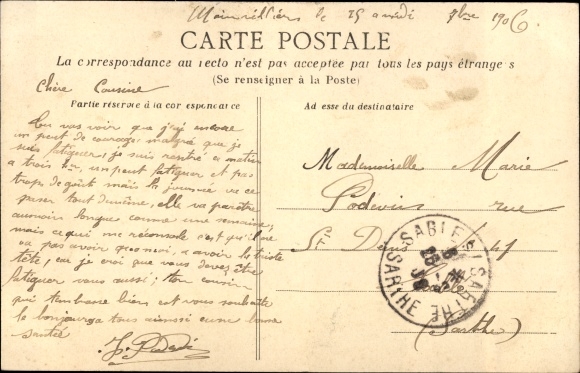 le 25 7bre 1906
CARTE POSTALE
La correspondance au recto n'est pas acceptée par tous les pays étrangers
(Se renseigner à la Poste)
Chère Cousine
Partie réservée à la correspondance
Adresse du destinataire
Tu vas voir que j'ai encore
un peut de courage malgré que je
suis fatiguer, je suis rentré ce matin
a trois un peut fatiguer et pas
trop de goût mais la journée va ce
passer tout de même, elle va paraître
aumoin longue comme une semaine,
mais ce qui me réconsole c'est qu'il ne
va pas avoir que moi, a avoir la triste
tête, car je croi que vous devez être
fatiguer vous aussi; ton cousin
qui t'embrasse bien et vous souhaite
le bonjour a tous aussi une bonne
santé
Mademoiselle Marie
rue
St Denis
(Sarthe)
SABLE S/ SARTHE
SARTHE